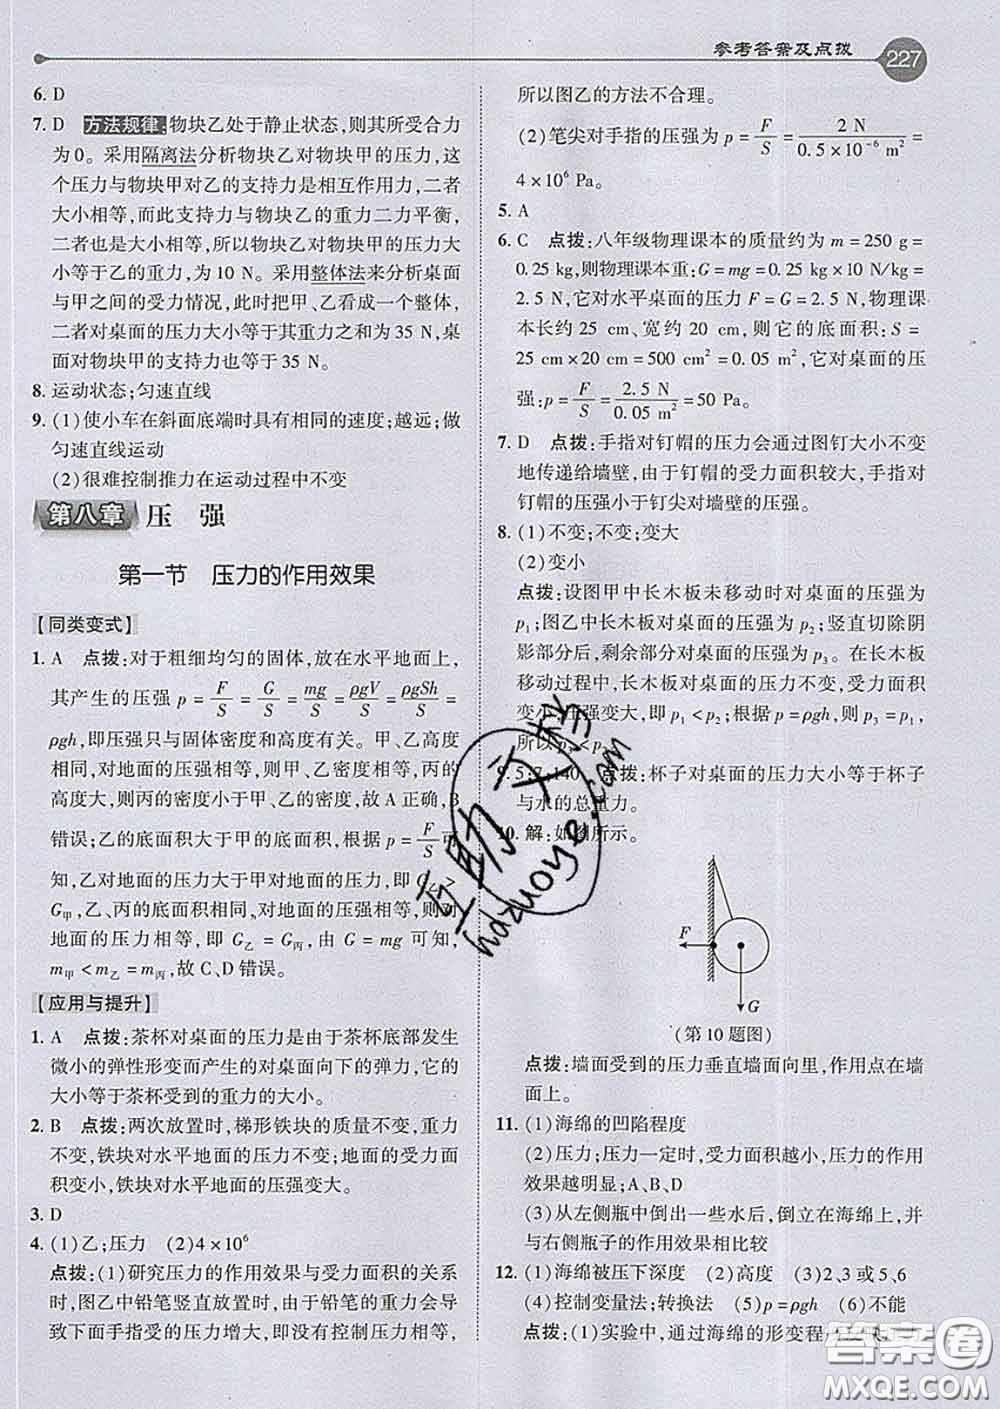 参考答案及点拨
227
6. D
7. D 方法规律:物块乙处于静止状态,则其所受合力
为0。采用隔离法分析物块乙对物块甲的压力,这
个压力与物块甲对乙的支持力是相互作用力,二者
大小相等,而此支持力与物块乙的重力二力平衡,
二者也是大小相等,所以物块乙对物块甲的压力大
小等于乙的重力,为 10 N。采用整体法来分析桌面
与甲之间的受力情况,此时把甲、乙看成一个整体,
二者对桌面的压力大小等于其重力之和为 35 N,桌
面对物块甲的支持力也等于 35 N。
8. 运动状态;匀速直线
9. (1)使小车在斜面底端时具有相同的速度;越远;做
匀速直线运动
(2)很难控制推力在运动过程中不变
第八章 压 强
第一节 压力的作用效果
【同类变式】
1. A 点拨:对于粗细均匀的固体,放在水平地面上,
其产生的压强 p = F/S = G/S = mg/S = ρgV/S = ρgSh/S =
ρgh,即压强只与固体密度和高度有关。甲、乙高度
相同,对地面的压强相等,则甲、乙密度相等,丙的
高度大,则丙的密度小于甲、乙的密度,故 A 正确,B
错误;乙的底面积大于甲的底面积,根据 p = F/S 可
知,乙对地面的压力大于甲对地面的压力,即 G乙>
G甲,乙、丙的底面积相同,对地面的压强相等,则对
地面的压力相等,即 G乙=G丙,由 G=mg 可知,
m甲<m乙=m丙,故 C、D 错误。
【应用与提升】
1. A 点拨:茶杯对桌面的压力是由于茶杯底部发生
微小的弹性形变而产生的对桌面向下的弹力。它的
大小等于茶杯受到的重力的大小。
2. B 点拨:两次放置时,梯形铁块的质量不变,重力
不变,铁块对水平地面的压力不变;地面的受力面
积变小,铁块对水平地面的压强变大。
3. D
4. (1)乙;压力 (2)4×10⁶
点拨:(1)研究压力的作用效果与受力面积的关系
时,图乙中铅笔竖直放置时,由于铅笔的重力会导
致下面手指受的压力增大,即没有控制压力相等,
所以图乙的方法不合理。
(2)笔尖对手指的压强为 p = F/S = 2 N/(0.5×10⁻⁶ m²) =
4×10⁶ Pa。
5. A
6. C 点拨:八年级物理课本的质量约为 m=250 g=
0.25 kg,则物理课本重:G=mg=0.25 kg×10 N/kg=
2.5 N,它对水平桌面的压力 F=G=2.5 N,物理课
本长约 25 cm、宽约 20 cm,则它的底面积:S=
25 cm×20 cm=500 cm²=0.05 m²,它对桌面的压
强:p = F/S = 2.5 N/0.05 m² = 50 Pa。
7. D 点拨:手指对钉帽的压力会通过图钉大小不变
地传递给墙壁,由于钉帽的受力面积较大,手指对
钉帽的压强小于钉尖对墙壁的压强。
8. (1)不变;不变;变大
(2)变小
点拨:设图甲中长木板未移动时对桌面的压强为
p₁;图乙中长木板对桌面的压强为 p₂;竖直切除阴
影部分后,剩余部分对桌面的压强为 p₃。在长木板
移动过程中,长木板对桌面的压力不变,受力面积
变小,压强变大,即 p₁<p₂;根据 p=ρgh,则 p₃=p₁,
所以 p₃<p₂。
9. 5;7;140 点拨:杯子对桌面的压力大小等于杯子
与水的总重力。
10. 解:如图所示。
F
G
(第 10 题图)
点拨:墙面受到的压力垂直墙面向里,作用点在墙
面上。
11. (1)海绵的凹陷程度
(2)压力;压力一定时,受力面积越小,压力的作用
效果越明显;A、B、D
(3)从左侧瓶中倒出一些水后,倒立在海绵上,并
与右侧瓶子的作用效果相比较
12. (1)海绵被压下深度 (2)高度 (3)2、3或5、6
(4)控制变量法;转换法 (5)p=ρgh (6)不能
点拨:(1)实验中,通过海绵的形变程
互助文档
hazuoye.com
答案圈
MXQE.COM